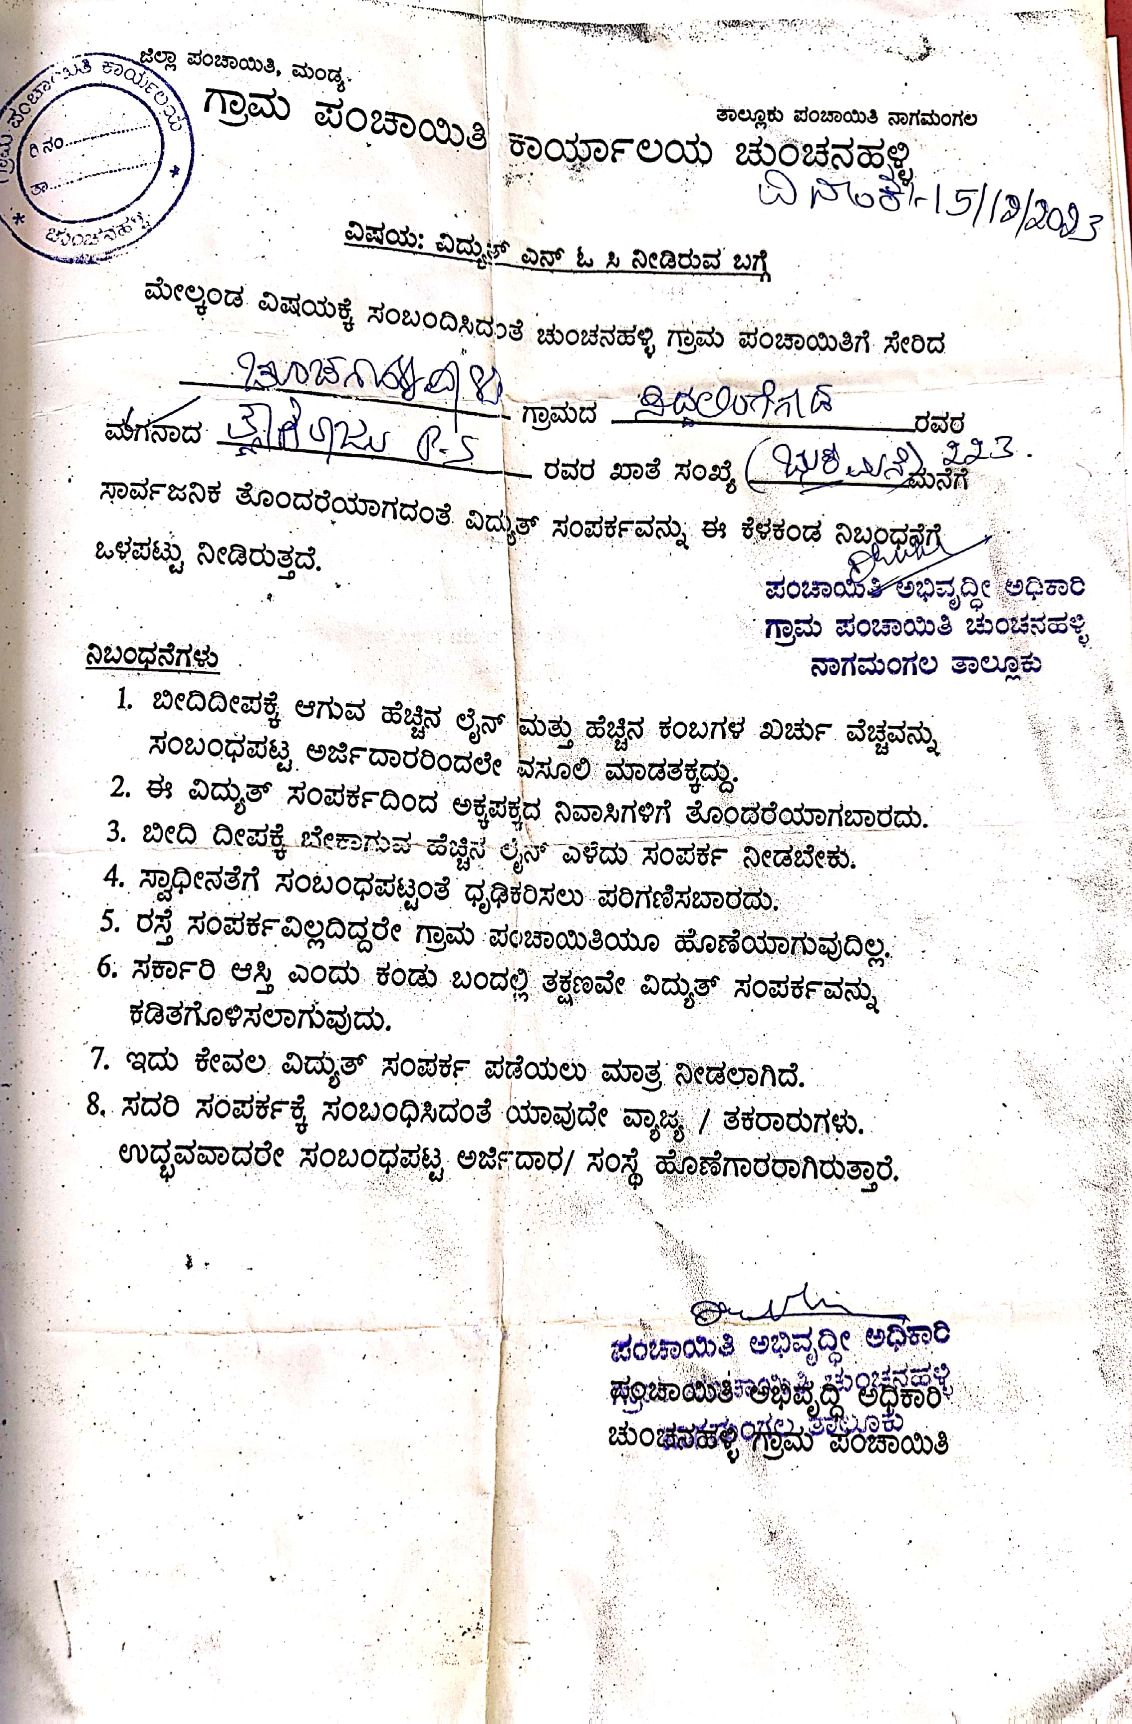 ಜಿಲ್ಲಾ ಪಂಚಾಯಿತಿ, ಮಂಡ್ಯ.
ತಾಲ್ಲೂಕು ಪಂಚಾಯಿತಿ ನಾಗಮಂಗಲ
ಗ್ರಾಮ ಪಂಚಾಯಿತಿ ಕಾರ್ಯಾಲಯ ಚುಂಚನಹಳ್ಳಿ
ಗ್ರಾಮ ಪಂಚಾಯಿತಿ ಕಾರ್ಯಾಲಯ
ನಂ
ತಾ
* ಚುಂಚನಹಳ್ಳಿ *
ದಿನಾಂಕ:-15/12/2023
ವಿಷಯ: ವಿದ್ಯುತ್ ಎನ್ ಓ ಸಿ ನೀಡಿರುವ ಬಗ್ಗೆ
ಮೇಲ್ಕಂಡ ವಿಷಯಕ್ಕೆ ಸಂಬಂದಿಸಿದಂತೆ ಚುಂಚನಹಳ್ಳಿ ಗ್ರಾಮ ಪಂಚಾಯಿತಿಗೆ ಸೇರಿದ
ಗ್ರಾಮದ ಸಿದ್ದಲಿಂಗೇಗೌಡ ರವರ
ಮಗನಾದ P.S ರವರ ಖಾತೆ ಸಂಖ್ಯೆ 223. ಮನೆಗೆ
ಸಾರ್ವಜನಿಕ ತೊಂದರೆಯಾಗದಂತೆ ವಿದ್ಯುತ್ ಸಂಪರ್ಕವನ್ನು ಈ ಕೆಳಕಂಡ ನಿಬ್ಬಂಧನೆಗೆ
ಒಳಪಟ್ಟು ನೀಡಿರುತ್ತದೆ.
ಪಂಚಾಯಿತಿ ಅಭಿವೃದ್ಧೀ ಅಧಿಕಾರಿ
ಗ್ರಾಮ ಪಂಚಾಯಿತಿ ಚುಂಚನಹಳ್ಳಿ
ನಾಗಮಂಗಲ ತಾಲ್ಲೂಕು
ನಿಬಂಧನೆಗಳು
1. ಬೀದಿದೀಪಕ್ಕೆ ಆಗುವ ಹೆಚ್ಚಿನ ಲೈನ್ ಮತ್ತು ಹೆಚ್ಚಿನ ಕಂಬಗಳ ಖರ್ಚು ವೆಚ್ಚವನ್ನು
ಸಂಬಂಧಪಟ್ಟ ಅರ್ಜಿದಾರರಿಂದಲೇ ವಸೂಲಿ ಮಾಡತಕ್ಕದ್ದು.
2. ಈ ವಿದ್ಯುತ್ ಸಂಪರ್ಕದಿಂದ ಅಕ್ಕಪಕ್ಕದ ನಿವಾಸಿಗಳಿಗೆ ತೊಂದರೆಯಾಗಬಾರದು.
3. ಬೀದಿ ದೀಪಕ್ಕೆ ಬೇಕಾಗುವ ಹೆಚ್ಚಿನ ಲೈನ್ ಎಳೆದು ಸಂಪರ್ಕ ನೀಡಬೇಕು.
4. ಸ್ವಾಧೀನತೆಗೆ ಸಂಬಂಧಪಟ್ಟಂತೆ ಧೃಢಿಕರಿಸಲು ಪರಿಗಣಿಸಬಾರದು.
5. ರಸ್ತೆ ಸಂಪರ್ಕವಿಲ್ಲದಿದ್ದರೇ ಗ್ರಾಮ ಪಂಚಾಯಿತಿಯೂ ಹೊಣೆಯಾಗುವುದಿಲ್ಲ.
6. ಸರ್ಕಾರಿ ಆಸ್ತಿ ಎಂದು ಕಂಡು ಬಂದಲ್ಲಿ ತಕ್ಷಣವೇ ವಿದ್ಯುತ್ ಸಂಪರ್ಕವನ್ನು
ಕಡಿತಗೊಳಿಸಲಾಗುವುದು.
7. ಇದು ಕೇವಲ ವಿದ್ಯುತ್ ಸಂಪರ್ಕ ಪಡೆಯಲು ಮಾತ್ರ ನೀಡಲಾಗಿದೆ.
8. ಸದರಿ ಸಂಪರ್ಕಕ್ಕೆ ಸಂಬಂಧಿಸಿದಂತೆ ಯಾವುದೇ ವ್ಯಾಜ್ಯ / ತಕರಾರುಗಳು.
ಉದ್ಭವವಾದರೇ ಸಂಬಂಧಪಟ್ಟ ಅರ್ಜಿದಾರ/ ಸಂಸ್ಥೆ ಹೊಣೆಗಾರರಾಗಿರುತ್ತಾರೆ.
ಪಂಚಾಯಿತಿ ಅಭಿವೃದ್ಧೀ ಅಧಿಕಾರಿ
ಪಂಚಾಯಿತಿ ಅಭಿವೃದ್ಧಿ ಅಧಿಕಾರಿ
ಚುಂಚನಹಳ್ಳಿ ಗ್ರಾಮ ಪಂಚಾಯಿತಿ